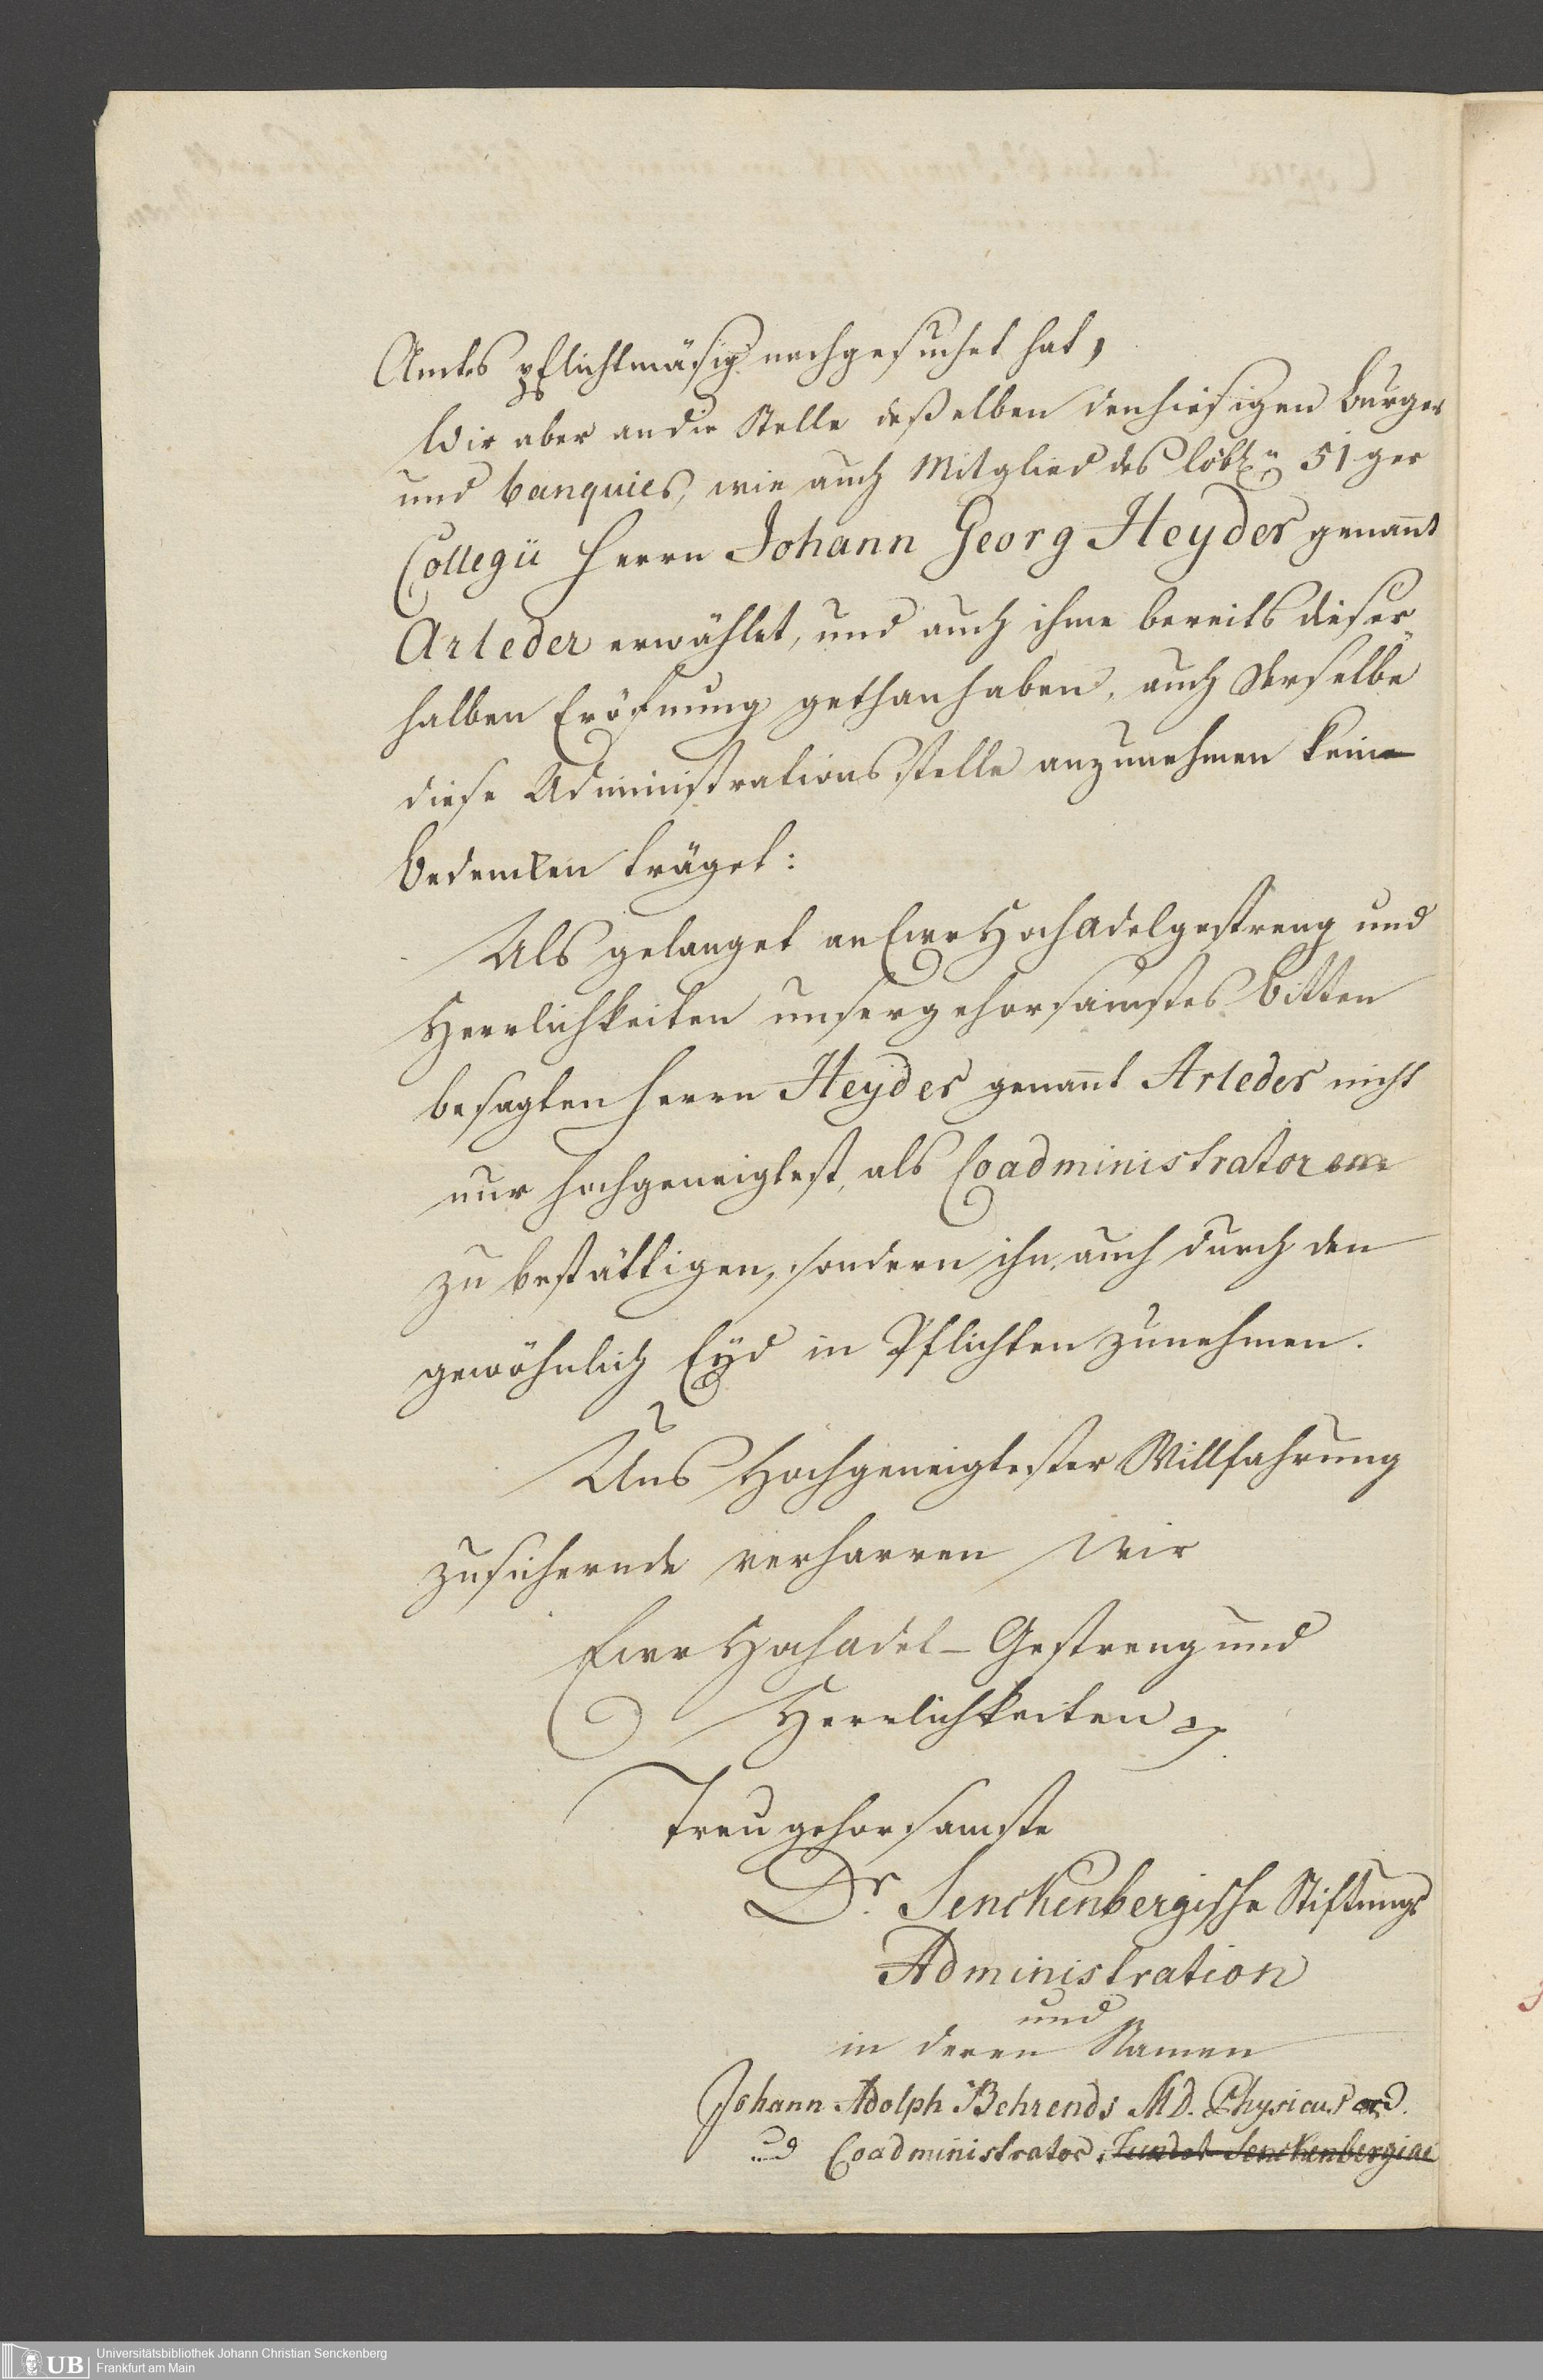 Amtes pflichtmäsig nachgesuchet hat,
Wir aber an die Stelle deßelben den hiesigen Burger
und banquier, wie auch Mitglied des löbl. 51ger
Collegii Herrn Johann Georg Heyder genannt
Arleder erwählet, und auch ihme bereits dieser
halben Eröfnung gethan haben, auch Derselbe
diese Administrationsstelle anzunehmen kein
bedencken träget:
Als gelanget an Eure Hochadelgestreng und
Herrlichkeiten unser gehorsamstes bitten
besagten Herrn Heyder genannt Arleder nicht
nur hochgeneigtest, als Coadministratorem
zu bestättigen, sondern ihn auch durch den
gewöhnlich Eyd in Pflichten zunehmen.
Uns Hochgeneigtester Willfahrung
zusichernde verharren Wir
Eure Hochadel-Gestreng und
Herrlichkeiten
Treu gehorsamste
Dr. Senckenbergische Stiftungs
Administration
und
in deren Namen
Johann Adolph Behrends MD. Physicus ord.
und Coadministrator Fundat Senckenbergiae
UB Universitätsbibliothek Johann Christian Senckenberg
Frankfurt am Main